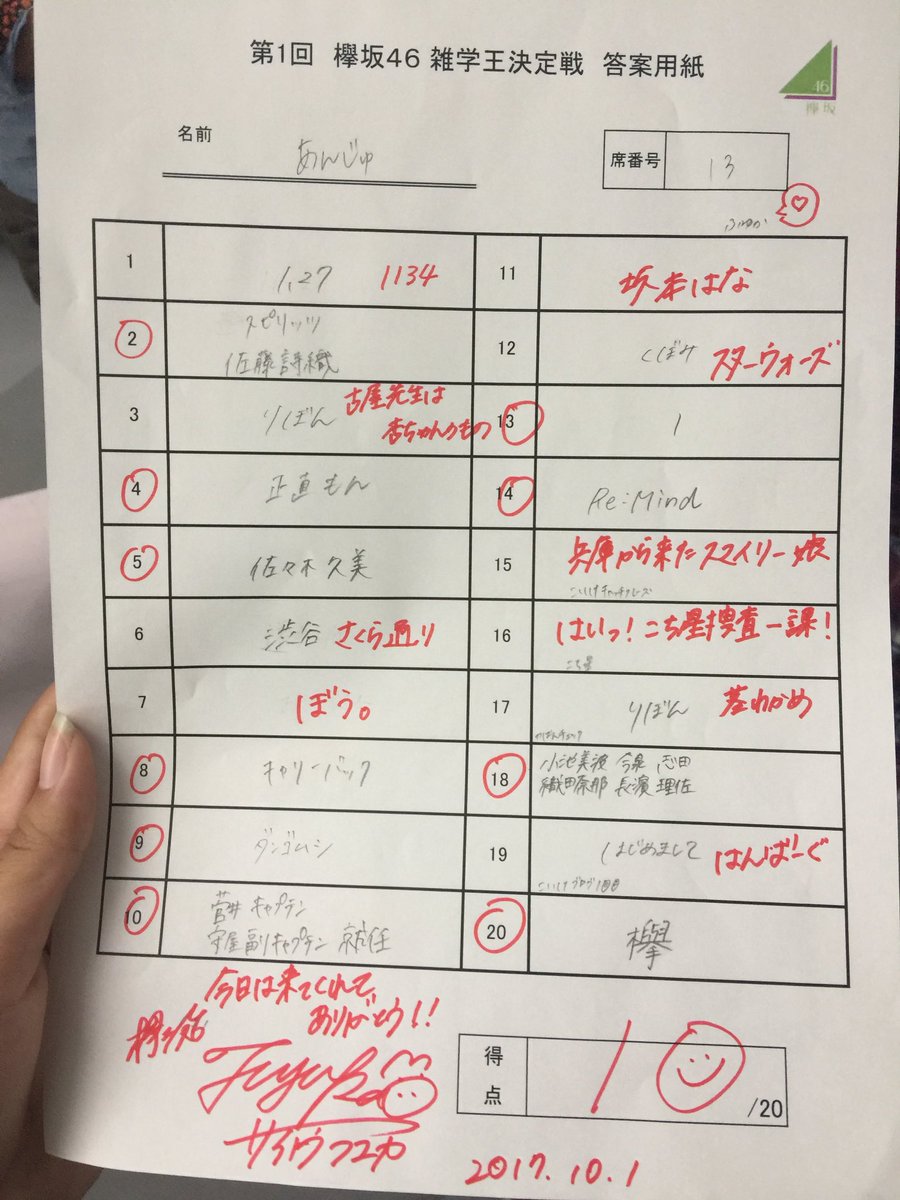 第1回 欅坂46 雑学王決定戦 答案用紙
46
欅坂
名前
あんじゅ
席番号
13
ふゆか
1
1,27 1134
2
スピリッツ
佐藤詩織
3
りぼん 古屋先生は
杏ちゃんのもの
4
正直もん
5
佐々木久美
6
渋谷 さくら通り
7
ぼう。
8
キャリーバック
9
ダンゴムシ
10
菅井 キャプテン
守屋 副キャプテン 就任
11
坂本はな
12
くぼみ スターウォーズ
13
1
14
Re:Mind
15
兵庫から来たスマイリー娘
こいけキャッチフレーズ
16
はいっ!こち星捜査一課!
こち星
17
りぼん 茎わかめ
18
小池美波 今泉 志田
織田奈那 長濱 理佐
19
はじめまして はんばーぐ
こいけブログ1回目
20
欅
今日は来てくれて、
ありがとう!!
サイトウフユカ
得点
10
/20
2017.10.1